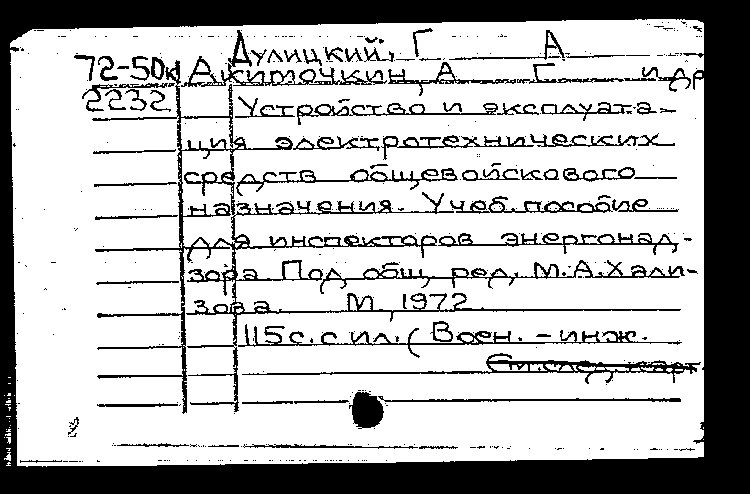 Дулицкий, Г А
72-50к Акимочкин, А Г и др
2232 Устройство и эксплуата-
ция электротехнических
средств общевойскового
назначения. Учеб. пособие
для инспекторов энергонад-
зора Под общ. ред. М.А.Хали-
зова. М, 1972.
115с. с ил. (Воен. - инж.
См. след. карт.